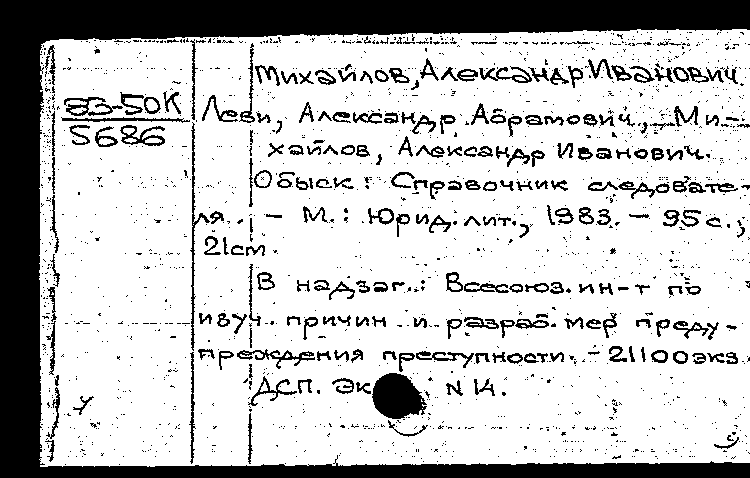 Михайлов, Александр Иванович
83-50К
5686
Леви, Александр Абрамович, Ми-
хайлов, Александр Иванович.
Обыск: Справочник следовате-
ля. - М.: Юрид. лит., 1983. - 95 с.;
21 cm.
В надзаг.: Всесоюз. ин-т по
изуч. причин и разраб. мер преду-
преждения преступности. - 21100 экз.
ДСП. Эк N 14.